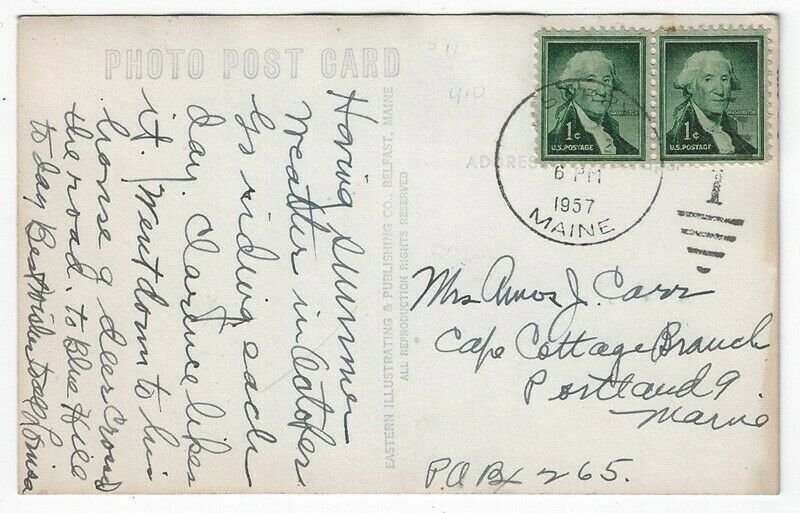 PHOTO POST CARD
Having summer
weather in October
Go riding each
day. Clarence likes
it. Went down to his
house a deer Crossed
the road. To Blue Hill
to day Best wishes to all Louisa
EASTERN ILLUSTRATING & PUBLISHING CO., BELFAST, MAINE
ALL REPRODUCTION RIGHTS RESERVED
410
ADDRESS
WASHINGTON
1¢
U.S. POSTAGE
WASHINGTON
1¢
U.S. POSTAGE
6 PM
1957
MAINE
1
Mrs Amos J. Carr
Cape Cottage Branch
Portland 9
Maine
P.O. Bx 265.